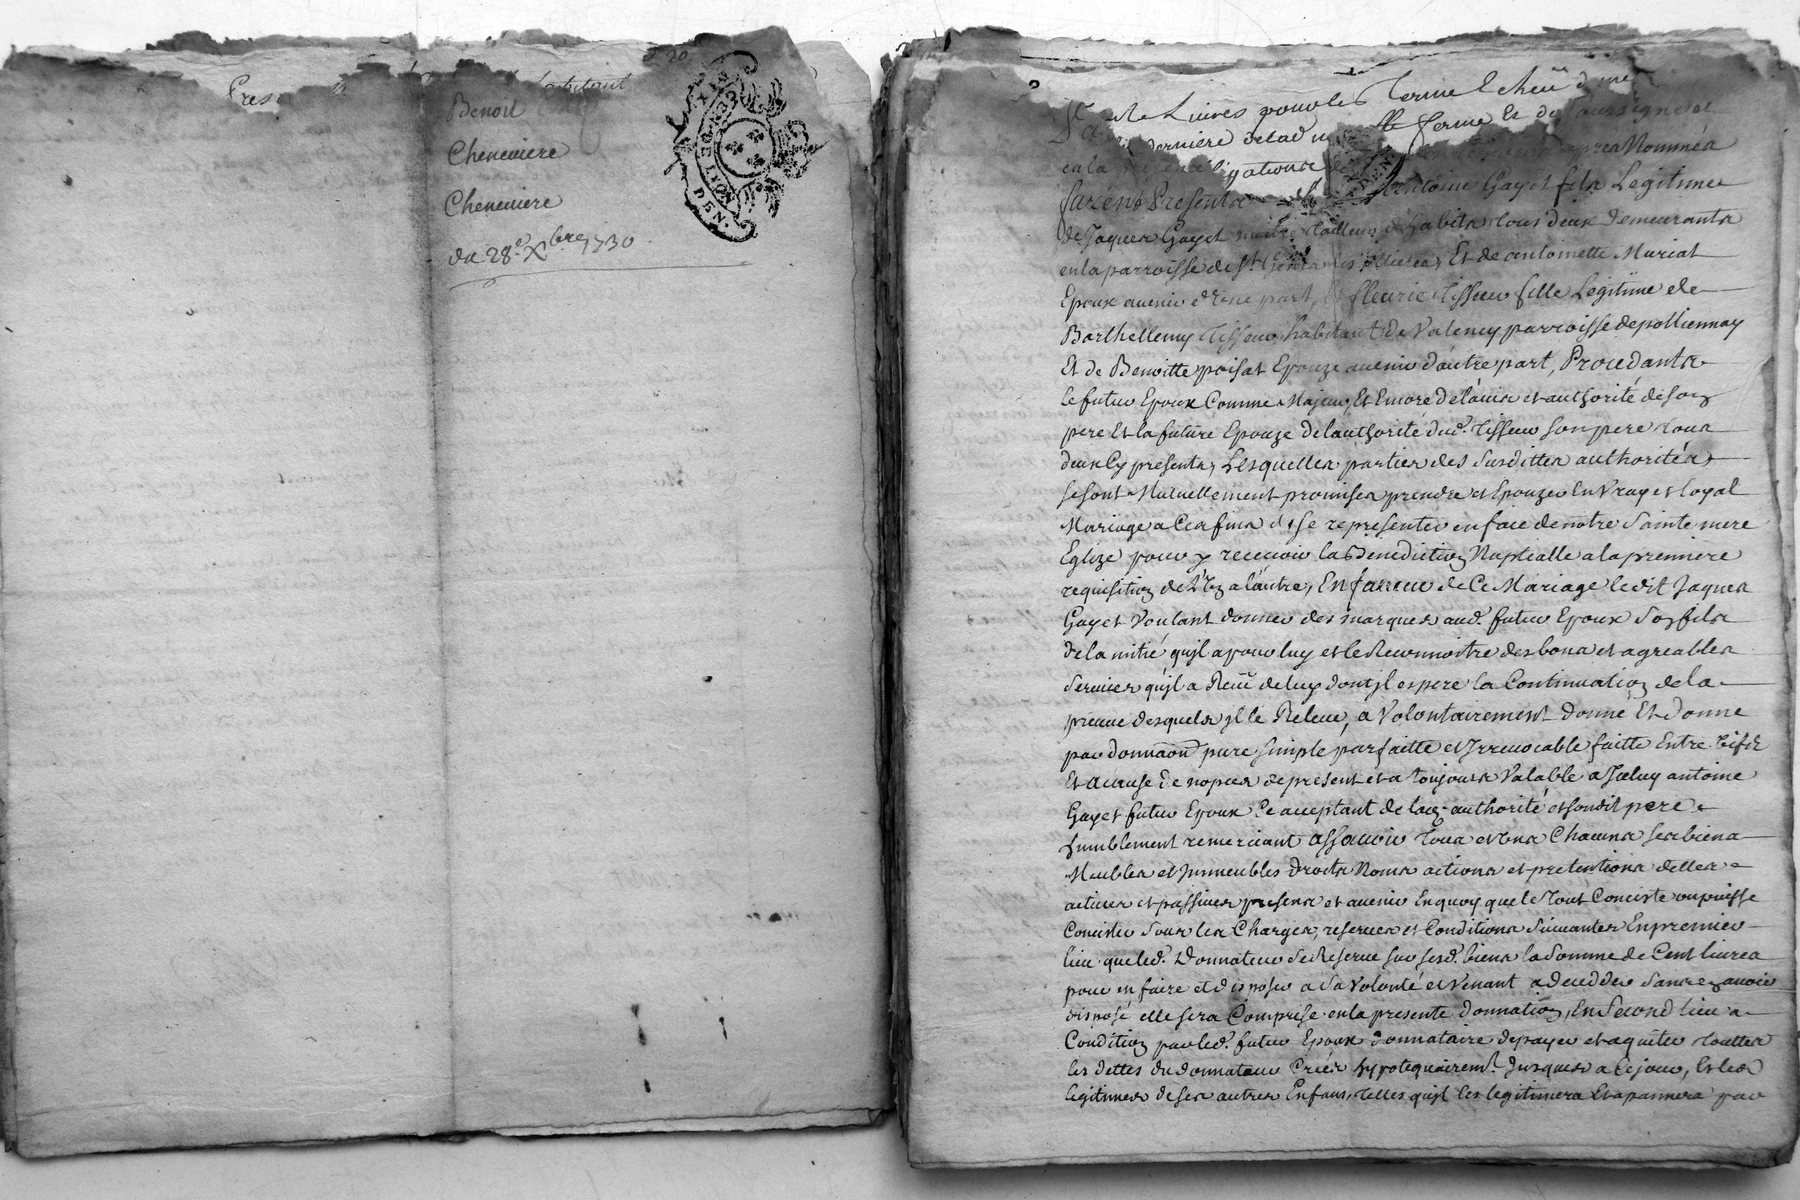 Pres
habitant
20
Benoit
Cheneviere
Cheneviere
du 28.e Xbre 1730
LYON
DEN.
de Livres pour le Terme Echeu d
derniere de lad ferme Et de
en la pres apres Nommés
furent Presents Antoine Gayet fils Legitime
de Jaques Gayet maitre tailleur d'habits tous deux demeurants
en la parroisse de St. Genis les Ollieres, Et de antoinette Muriat
Epoux avenir d'Une part, Et fleurie Tisseur fille Legitime de
Barthellemy Tisseur habitant de Valency parroisse de pollionnay
Et de Benoitte poisat Epouze avenir d'autre part, Procedants
le futur Epoux Comme Majeur, Et Encore de l'avis et authorité de son
pere Et la future Epouze de l'authorité dud. Tisseur son pere tous
deux Cy presents, Lesquelles parties des susdittes authorités
se sont Mutuellement promises prendre et Epouzer En Vray et loyal
Mariage a Ces fins de se representer en face de notre Sainte mere
Eglize pour y recevoir la Benediction Nuptialle a la premiere
requisition de l'Un a l'autre, En faveur de Ce Mariage ledit Jaques
Gayet Voulant donner des marques aud. futur Epoux son fils
de l'amitié qu'jl a pour luy et le Reconnoitre des bons et agreables
services qu'jl a Receu de luy dont jl espere la Continuation de la
preuve desquels jl le Releve, a Volontairement donné Et Donne
par donnaôn pure simple parfaitte et Irrevocable faitte Entre Vifs
Et a cause de nopces de present et a toujours Valable a Iceluy antoine
Gayet futur Epoux Ce acceptant de lad. authorité et sondit pere
humblement remerciant assavoir tous et Uns Chacuns ses biens
Meubles et Immeubles droits Noms actions et pretentions dettes
actives et passives presens et avenir En quoy que le Tout Conciste ou puisse
Concister sous les Charges, reserves et Conditions suivantes En premier
lieu que led. Donnateur se Reserve sur sesd. biens la somme de Cent livres
pour en faire et disposer a sa Volonté et Venant a decedder sans en avoir
disposé elle sera Comprise en la presente donnation, En Second lieu a
Condition par led. futur Epoux donnataire de payer et aquiter toutes
les dettes du donnateur Créés hypotequairemt. Jusques a Ce jour, Et les
legitimes de ses autres Enfans, telles qu'jl les legitimera Et apannera par